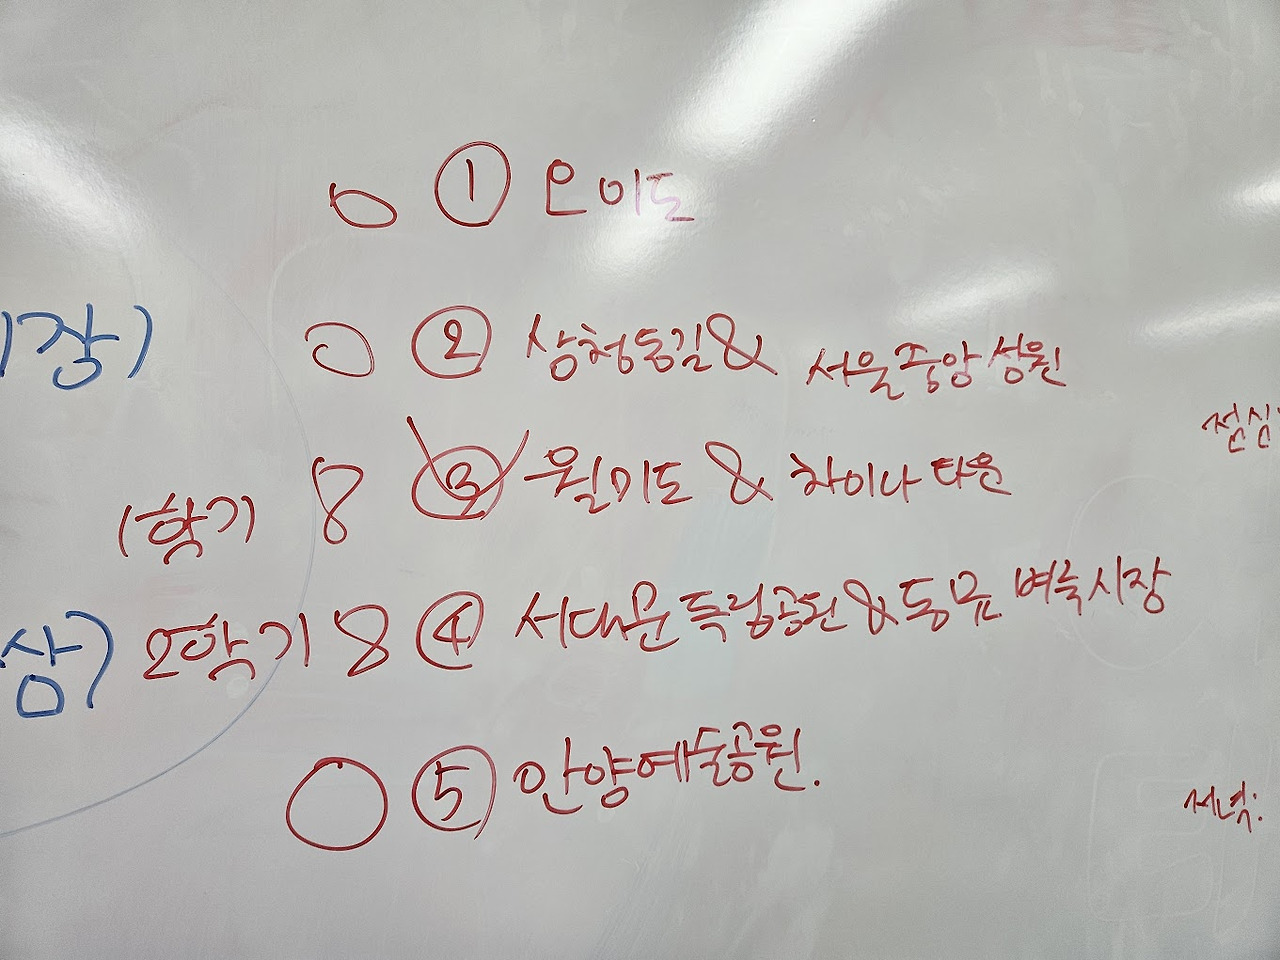 ① 오이도
장)
② 삼청동길 & 서울중앙성원
점심
(학기 8 ③ 월미도 & 차이나타운
삼) 2학기 8 ④ 서대문독립공원 & 동묘 벼룩시장
⑤ 안양예술공원.
저녁: